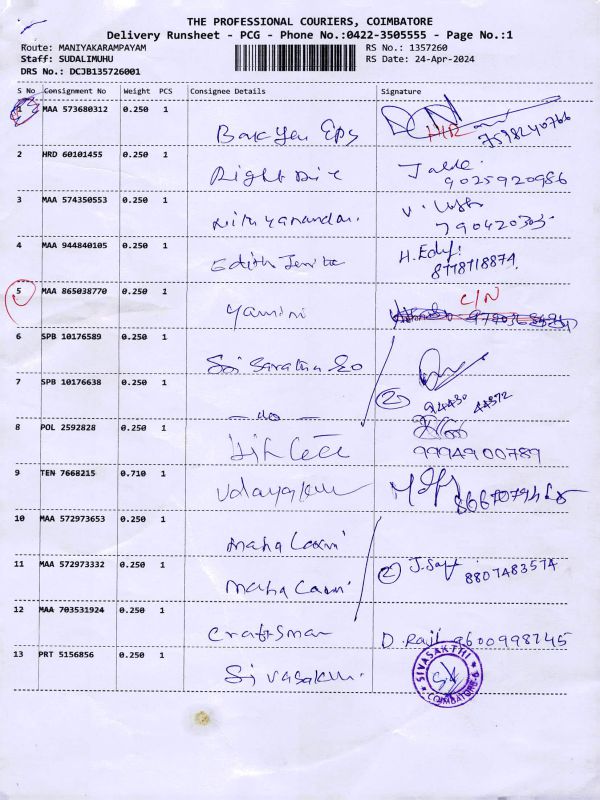 THE PROFESSIONAL COURIERS, COIMBATORE
Delivery Runsheet - PCG - Phone No.:0422-3505555 - Page No.:1
Route: MANIYAKARAMPAYAM RS No.: 1357260
Staff: SUDALIMUHU RS Date: 24-Apr-2024
DRS No.: DCJB135726001
S No Consignment No Weight PCS Consignee Details Signature
1 MAA 573680312 0.250 1
7598240766
2 HRD 60101455 0.250 1
9025920986
3 MAA 574350553 0.250 1
Nithyanandan
4 MAA 944840105 0.250 1 H. Edy
Edith 8778718874
5 MAA 865038770 0.250 1 C/N
Yamini
6 SPB 10176589 0.250 1
7 SPB 10176638 0.250 1 2
-do- 94430 44372
8 POL 2592828 0.250 1
9994900789
9 TEN 7668215 0.710 1
Udayakum
10 MAA 572973653 0.250 1
Maha Laxmi
11 MAA 572973332 0.250 1 2 J. Saf
Maha Laxmi 8807483574
12 MAA 703531924 0.250 1
Craftsman D. Raji 9600998745
13 PRT 5156856 0.250 1 SIVASAKTHI
Sivasakthi COIMBATORE-6